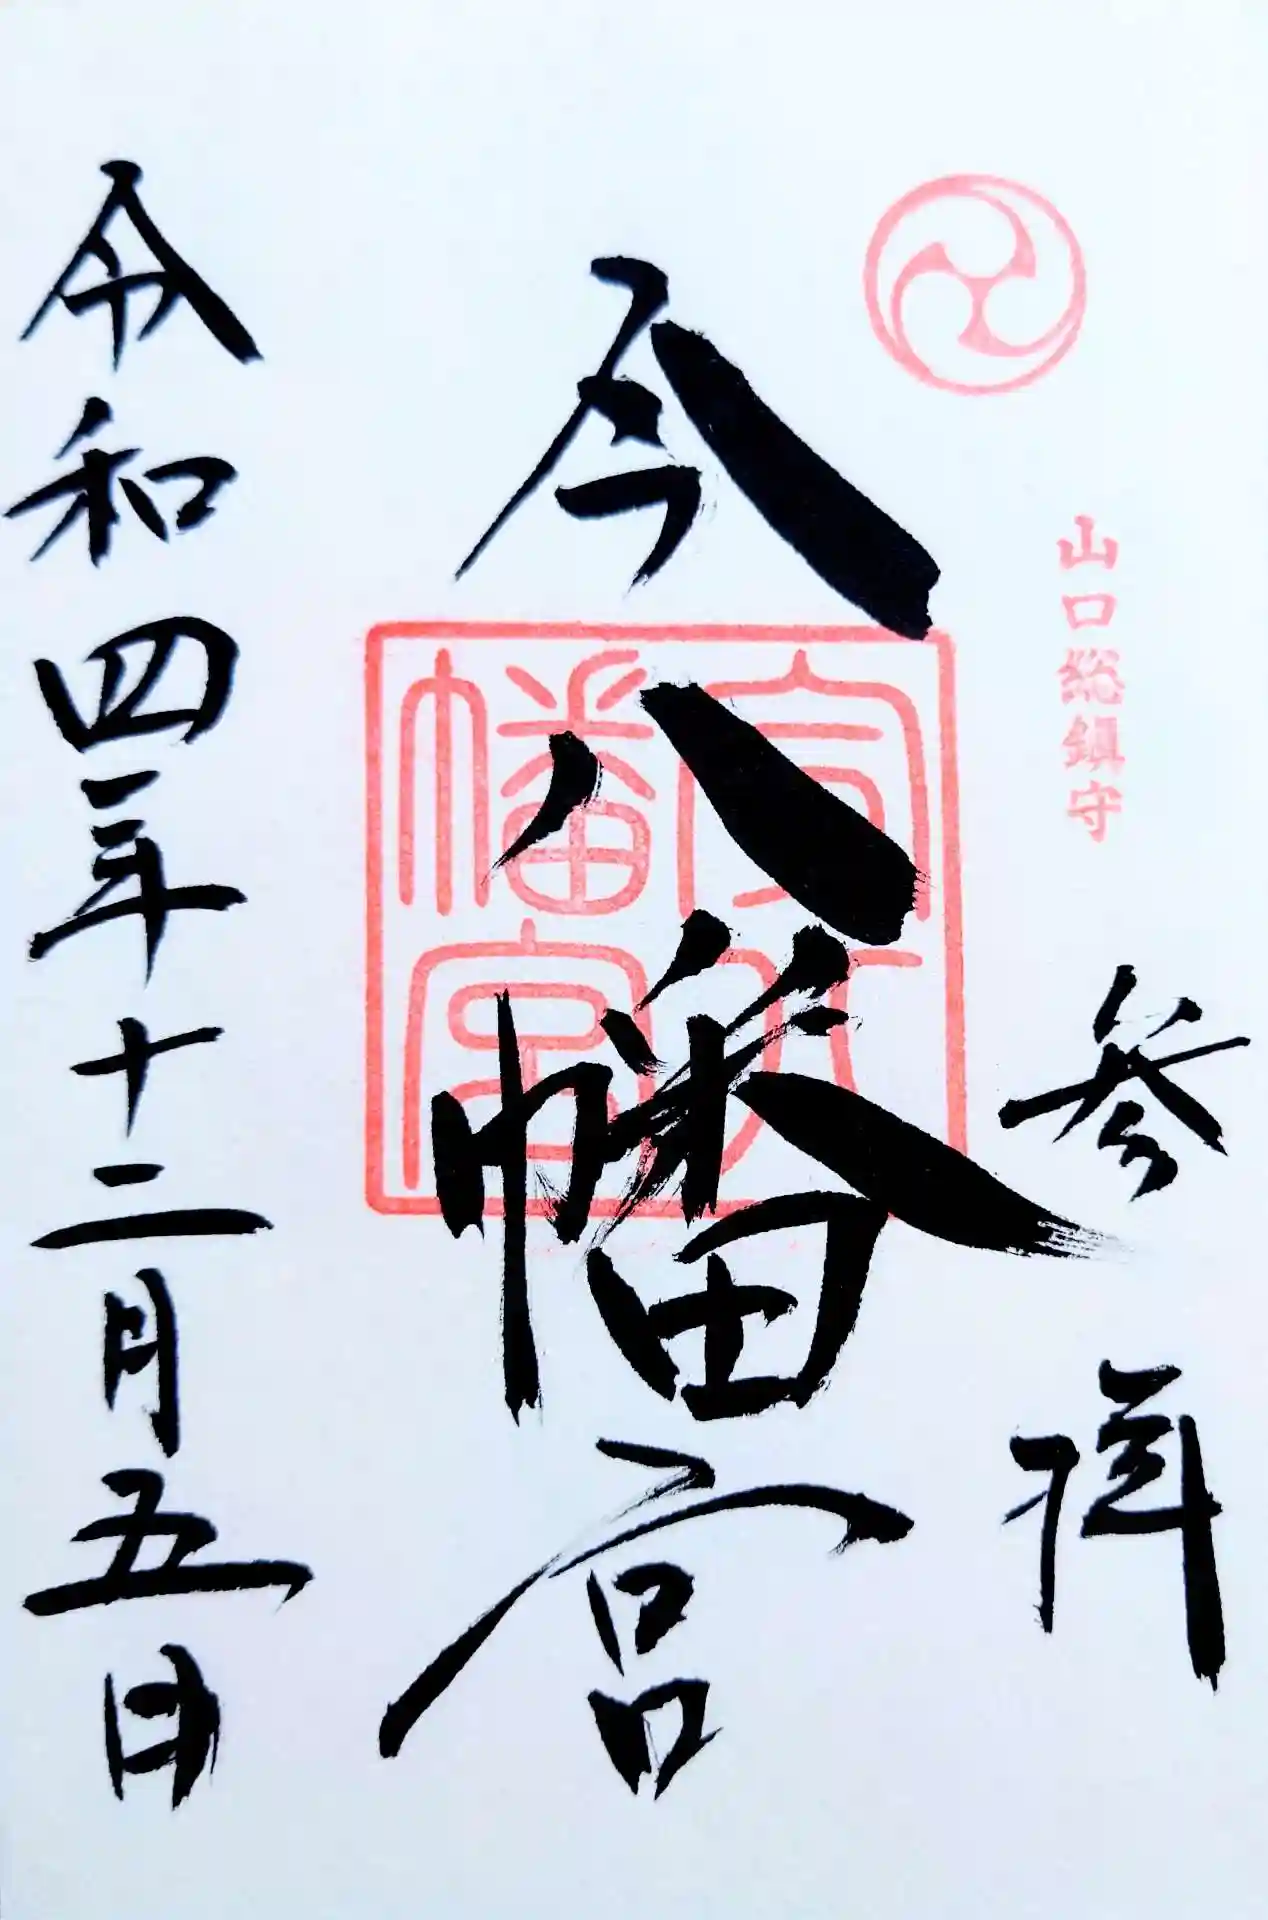 山口総鎮守
参拝
今八幡宮
幡宮
令和四年十二月五日